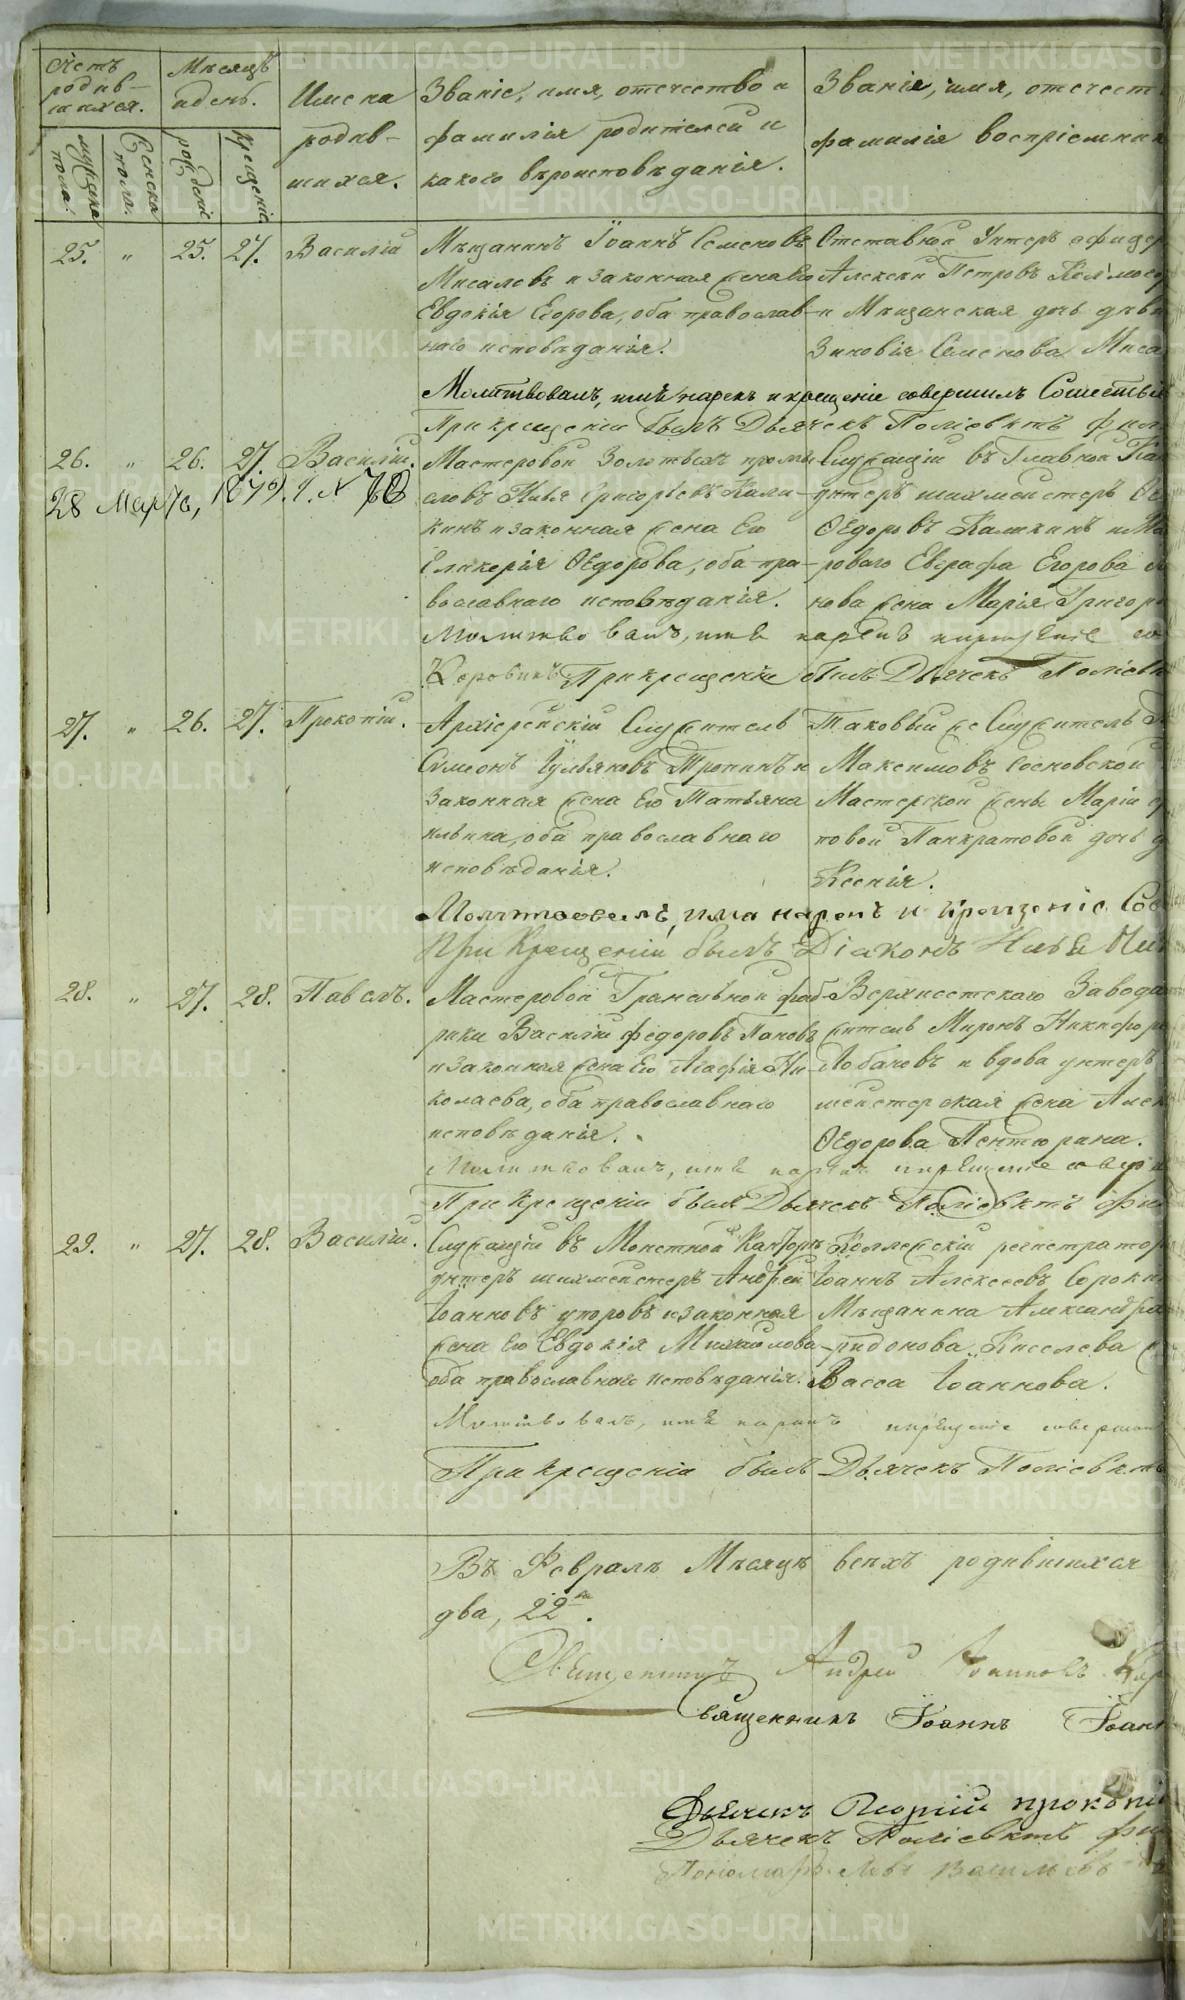 Счетъ родив-шихся.
Мѣсяцъ и день.
Имена родив-шихся.
Званіе, имя, отечество и фамилія родителей и какого вѣроисповѣданія.
Званіе, имя, отечест
фамилія воспріемник
мужска пола.
Женска пола.
рожденіе
Крещеніе
25. " 25. 27. Василій
Мѣщанинъ Іоаннъ Семеновъ
Мисалевъ и законная жена его
Евдокія Егорова, оба православ-
наго исповѣданія.
Отставной Унтеръ офицер
Алексей Петровъ
и Мѣщанская дочь дѣви
Зиновія Семенова Миса
Молитвовалъ, имя нарекъ и крещеніе совершилъ
При крещеніи былъ Дьячекъ Поліевктъ Фил
26. " 26. 27. Василій.
28 Марта, 1879. г. N
Мастеровой Золотыхъ промы
словъ Илья Григорьевъ Кали-
кинъ и законная жена его
Гликерія Ѳедорова, оба пра-
вославнаго исповѣданія.
Служащій въ Главной
унтеръ шихмейстеръ
Ѳедоровъ Каликинъ и Ма
роваго Евграфа Егорова
нова жена Марія Григор
Молитвовалъ, имя нарекъ и крещеніе со
Коровинъ При крещеніи былъ Дьячекъ Поліевк
27. " 26. 27. Прокопій.
Архіерейскій Служитель
Симеонъ Ульяновъ Тропинъ и
законная жена его Татьяна
Ильина, оба православнаго
исповѣданія.
Таковый же Служитель
Максимовъ Сосновской
Мастерской жены Маріи
товой Панкратовой дочь д
Ксенія.
Молитвовалъ, имя нарекъ и Крещеніе Сов
При Крещеніи былъ Діаконъ Илья
28. " 27. 28. Павелъ.
Мастеровой Гранильной фаб-
рики Василій Федоровъ Пановъ
и законная жена его Агафія Ни-
колаева, оба православнаго
исповѣданія.
Верхисетскаго Завода
житель Миронъ Никифоро
Лобановъ и вдова унтеръ
мейстерская жена Алек
Ѳедорова Пентюрина.
Молитвовалъ, имя нарекъ и крещеніе совер
При Крещеніи былъ Дьячекъ Поліевктъ Фил
29. " 27. 28. Василій.
Служащій въ Монетной Канторѣ
унтеръ шихмейстеръ Андрей
Іоанновъ уторовъ и законная
жена его Евдокія Михайлова
оба православнаго исповѣданія.
Коллежскій регистратор
Іоаннъ Алексеевъ Сороки
Мѣщанина Александра
ридонова Киселева
Васса Іоаннова.
Молитвовалъ, имя нарекъ и крещеніе совершил
При крещеніи былъ Дьячекъ Поліевктъ
Въ Февралѣ Мѣсяцѣ всѣхъ родившихся
два, 22.
Священникъ Андрей Іоанновъ Кор
Священникъ Іоаннъ Іоанн
Дьячекъ Георгій прокопі
Дьячекъ Поліевктъ Фил
Пономарь Левъ Васильевъ
METRIKI.GASO-URAL.RU